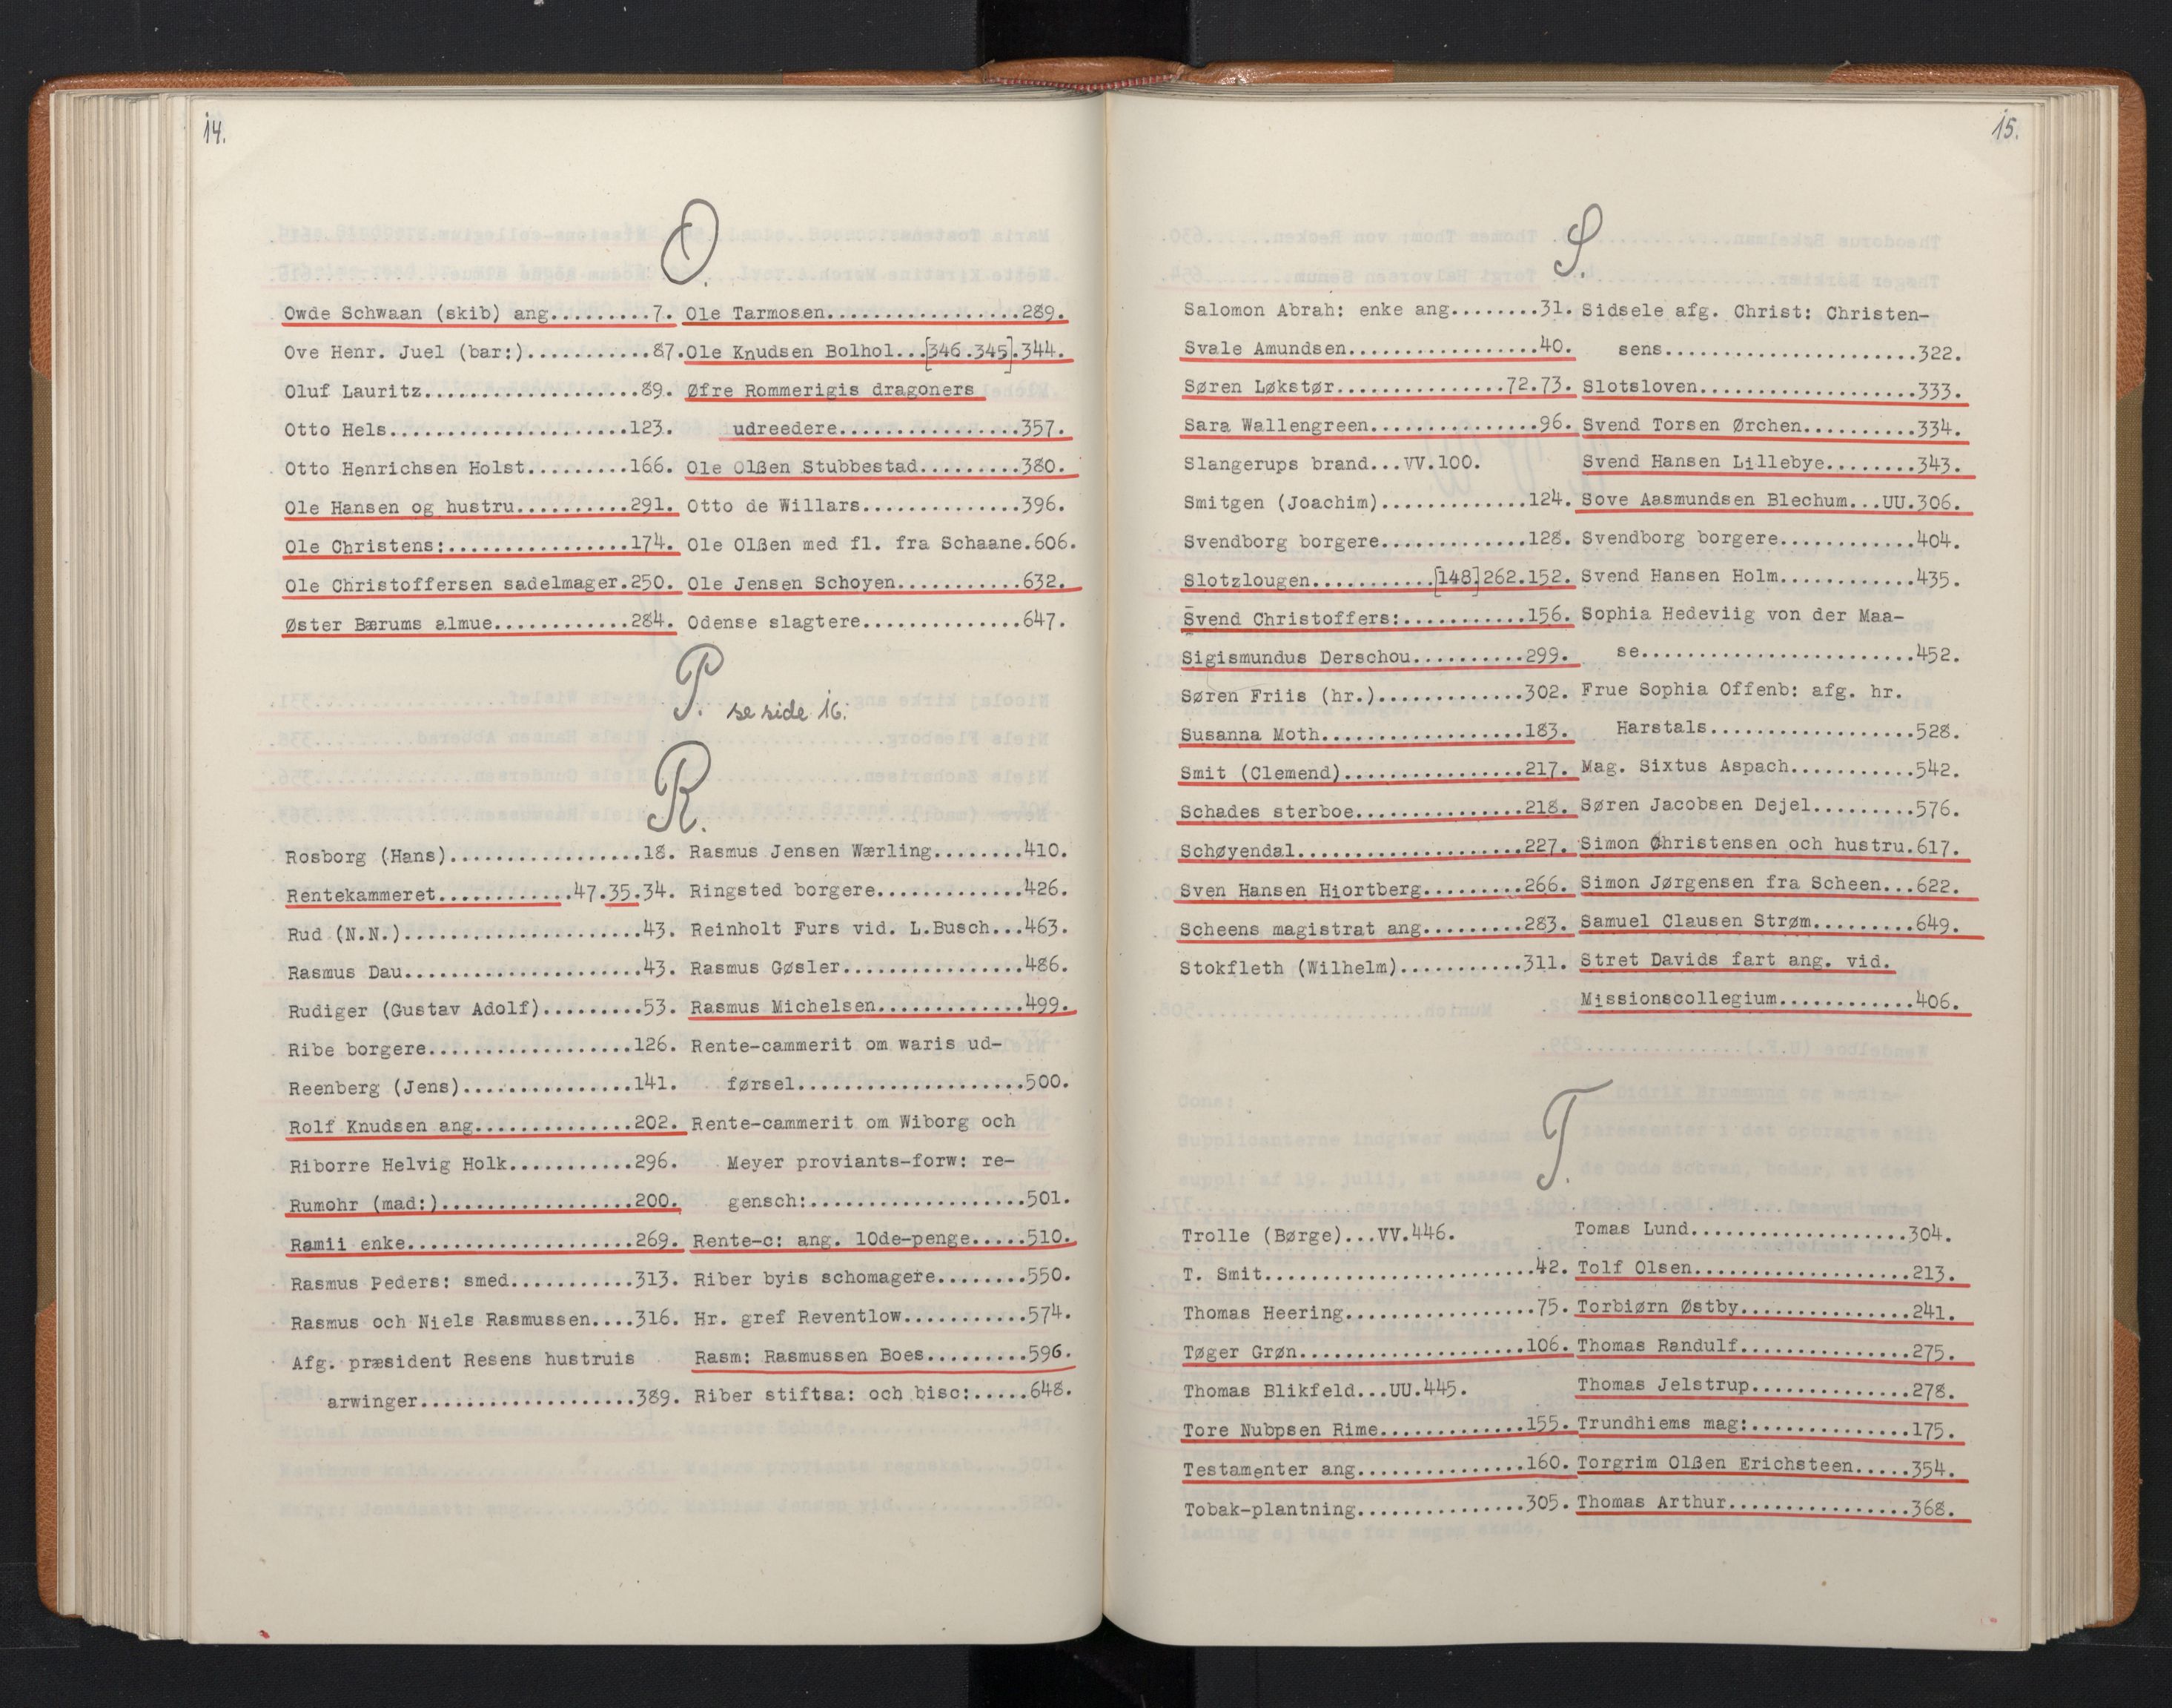 14.
O.
Owde Schwaan (skib) ang.........7.
Ove Henr. Juel (bar:)...........87.
Oluf Lauritz...................89.
Otto Hels.....................123.
Otto Henrichsen Holst.........166.
Ole Hansen og hustru..........291.
Ole Christens:................174.
Ole Christoffersen sadelmager.250.
Øster Bærums almue............284.
Ole Tarmosen.................289.
Ole Knudsen Bolhol...[346.345].344.
Øfre Rommerigis dragoners
udreedere................357.
Ole Olßen Stubbestad.........380.
Otto de Willars..............396.
Ole Olßen med fl. fra Schaane.606.
Ole Jensen Schoyen...........632.
Odense slagtere..............647.
P. se side 16.
R.
Rosborg (Hans).................18.
Rentekammeret............47.35.34.
Rud (N.N.).....................43.
Rasmus Dau.....................43.
Rudiger (Gustav Adolf).........53.
Ribe borgere..................126.
Reenberg (Jens)...............141.
Rolf Knudsen ang..............202.
Riborre Helvig Holk...........296.
Rumohr (mad:).................200.
Ramii enke....................269.
Rasmus Peders: smed...........313.
Rasmus och Niels Rasmussen....316.
Afg. præsident Resens hustruis
arwinger...................389.
Rasmus Jensen Wærling........410.
Ringsted borgere.............426.
Reinholt Furs vid. L.Busch...463.
Rasmus Gøsler................486.
Rasmus Michelsen.............499.
Rente-cammerit om waris ud-
førsel.....................500.
Rente-cammerit om Wiborg och
Meyer proviants-forw: re-
gensch:....................501.
Rente-c: ang. 10de-penge.....510.
Riber byis schomagere........550.
Hr. gref Reventlow...........574.
Rasm: Rasmussen Boes.........596.
Riber stiftsa: och bisc:.....648.
15.
S.
Salomon Abrah: enke ang........31.
Svale Amundsen.................40.
Søren Løkstør...............72.73.
Sara Wallengreen...............96.
Slangerups brand...VV.100.
Smitgen (Joachim).............124.
Svendborg borgere.............128.
Slotzlougen...........[148]262.152.
Svend Christoffers:...........156.
Sigismundus Derschou..........299.
Søren Friis (hr.).............302.
Susanna Moth..................183.
Smit (Clemend)................217.
Schades sterboe...............218.
Schøyendal....................227.
Sven Hansen Hiortberg.........266.
Scheens magistrat ang.........283.
Stokfleth (Wilhelm)...........311.
Sidsele afg. Christ: Christen-
sens.......................322.
Slotsloven...................333.
Svend Torsen Ørchen..........334.
Svend Hansen Lillebye........343.
Sove Aasmundsen Blechum...UU.306.
Svendborg borgere............404.
Svend Hansen Holm............435.
Sophia Hedeviig von der Maa-
se.........................452.
Frue Sophia Offenb: afg. hr.
Harstals...................528.
Mag. Sixtus Aspach...........542.
Søren Jacobsen Dejel.........576.
Simon Christensen och hustru.617.
Simon Jørgensen fra Scheen...622.
Samuel Clausen Strøm.........649.
Stret Davids fart ang. vid.
Missionscollegium............406.
T.
Trolle (Børge)...VV.446.
T. Smit........................42.
Thomas Heering.................75.
Tøger Grøn....................106.
Thomas Blikfeld...UU.445.
Tore Nubpsen Rime.............155.
Testamenter ang...............160.
Tobak-plantning...............305.
Tomas Lund...................304.
Tolf Olsen...................213.
Torbiørn Østby...............241.
Thomas Randulf...............275.
Thomas Jelstrup..............278.
Trundhiems mag:..............175.
Torgrim Olßen Erichsteen.....354.
Thomas Arthur................368.